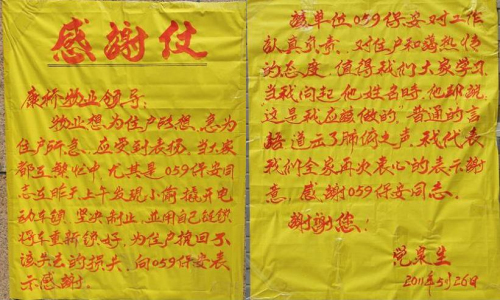 感謝仗
康桥物业领导:
物业想为住户所想,急为
住户所急,应受到表扬,当大家
都在熟忙中,尤其是059保安同
志在昨天上午发现小偷撬开电
动车锁,坚决制止,并用自己链锁
将车重新锁好,为住户挽回了不
该失去的损失,向059保安表
示感谢.
该单位059保安对工作
认真负责,对住户和蔼热情
的态度,值得我们大家学习
当我问起他姓名时,他却说
这是我应该做的,普通的言
语道示了肺腑之声,我代表
我们全家再次衷心的表示謝
意,感謝059保安同志.
謝謝您!
2011年5月26日